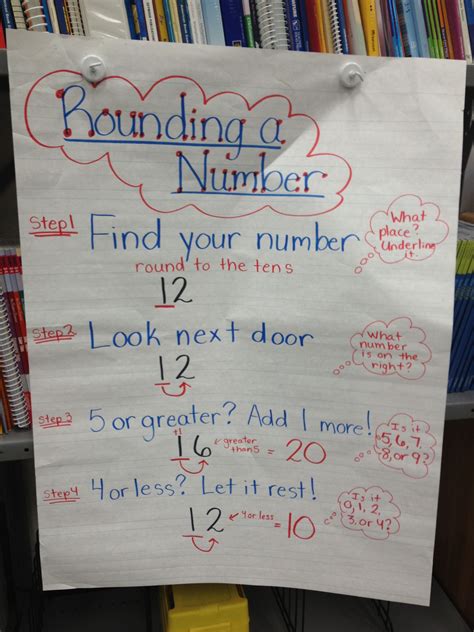 Rounding a
Number
Step1 Find your number
round to the tens
12
What
place?
Underling
it.
Step2 Look next door
12
What
number
is on the
right?
Step 3 5 or greater? Add 1 more!
+1
16 greater
than 5 = 20
Is it
5, 6, 7,
8, or 9?
Step4 4 or less? Let it rest!
12 4 or less = 10
Is it
0, 1, 2,
3, or 4?